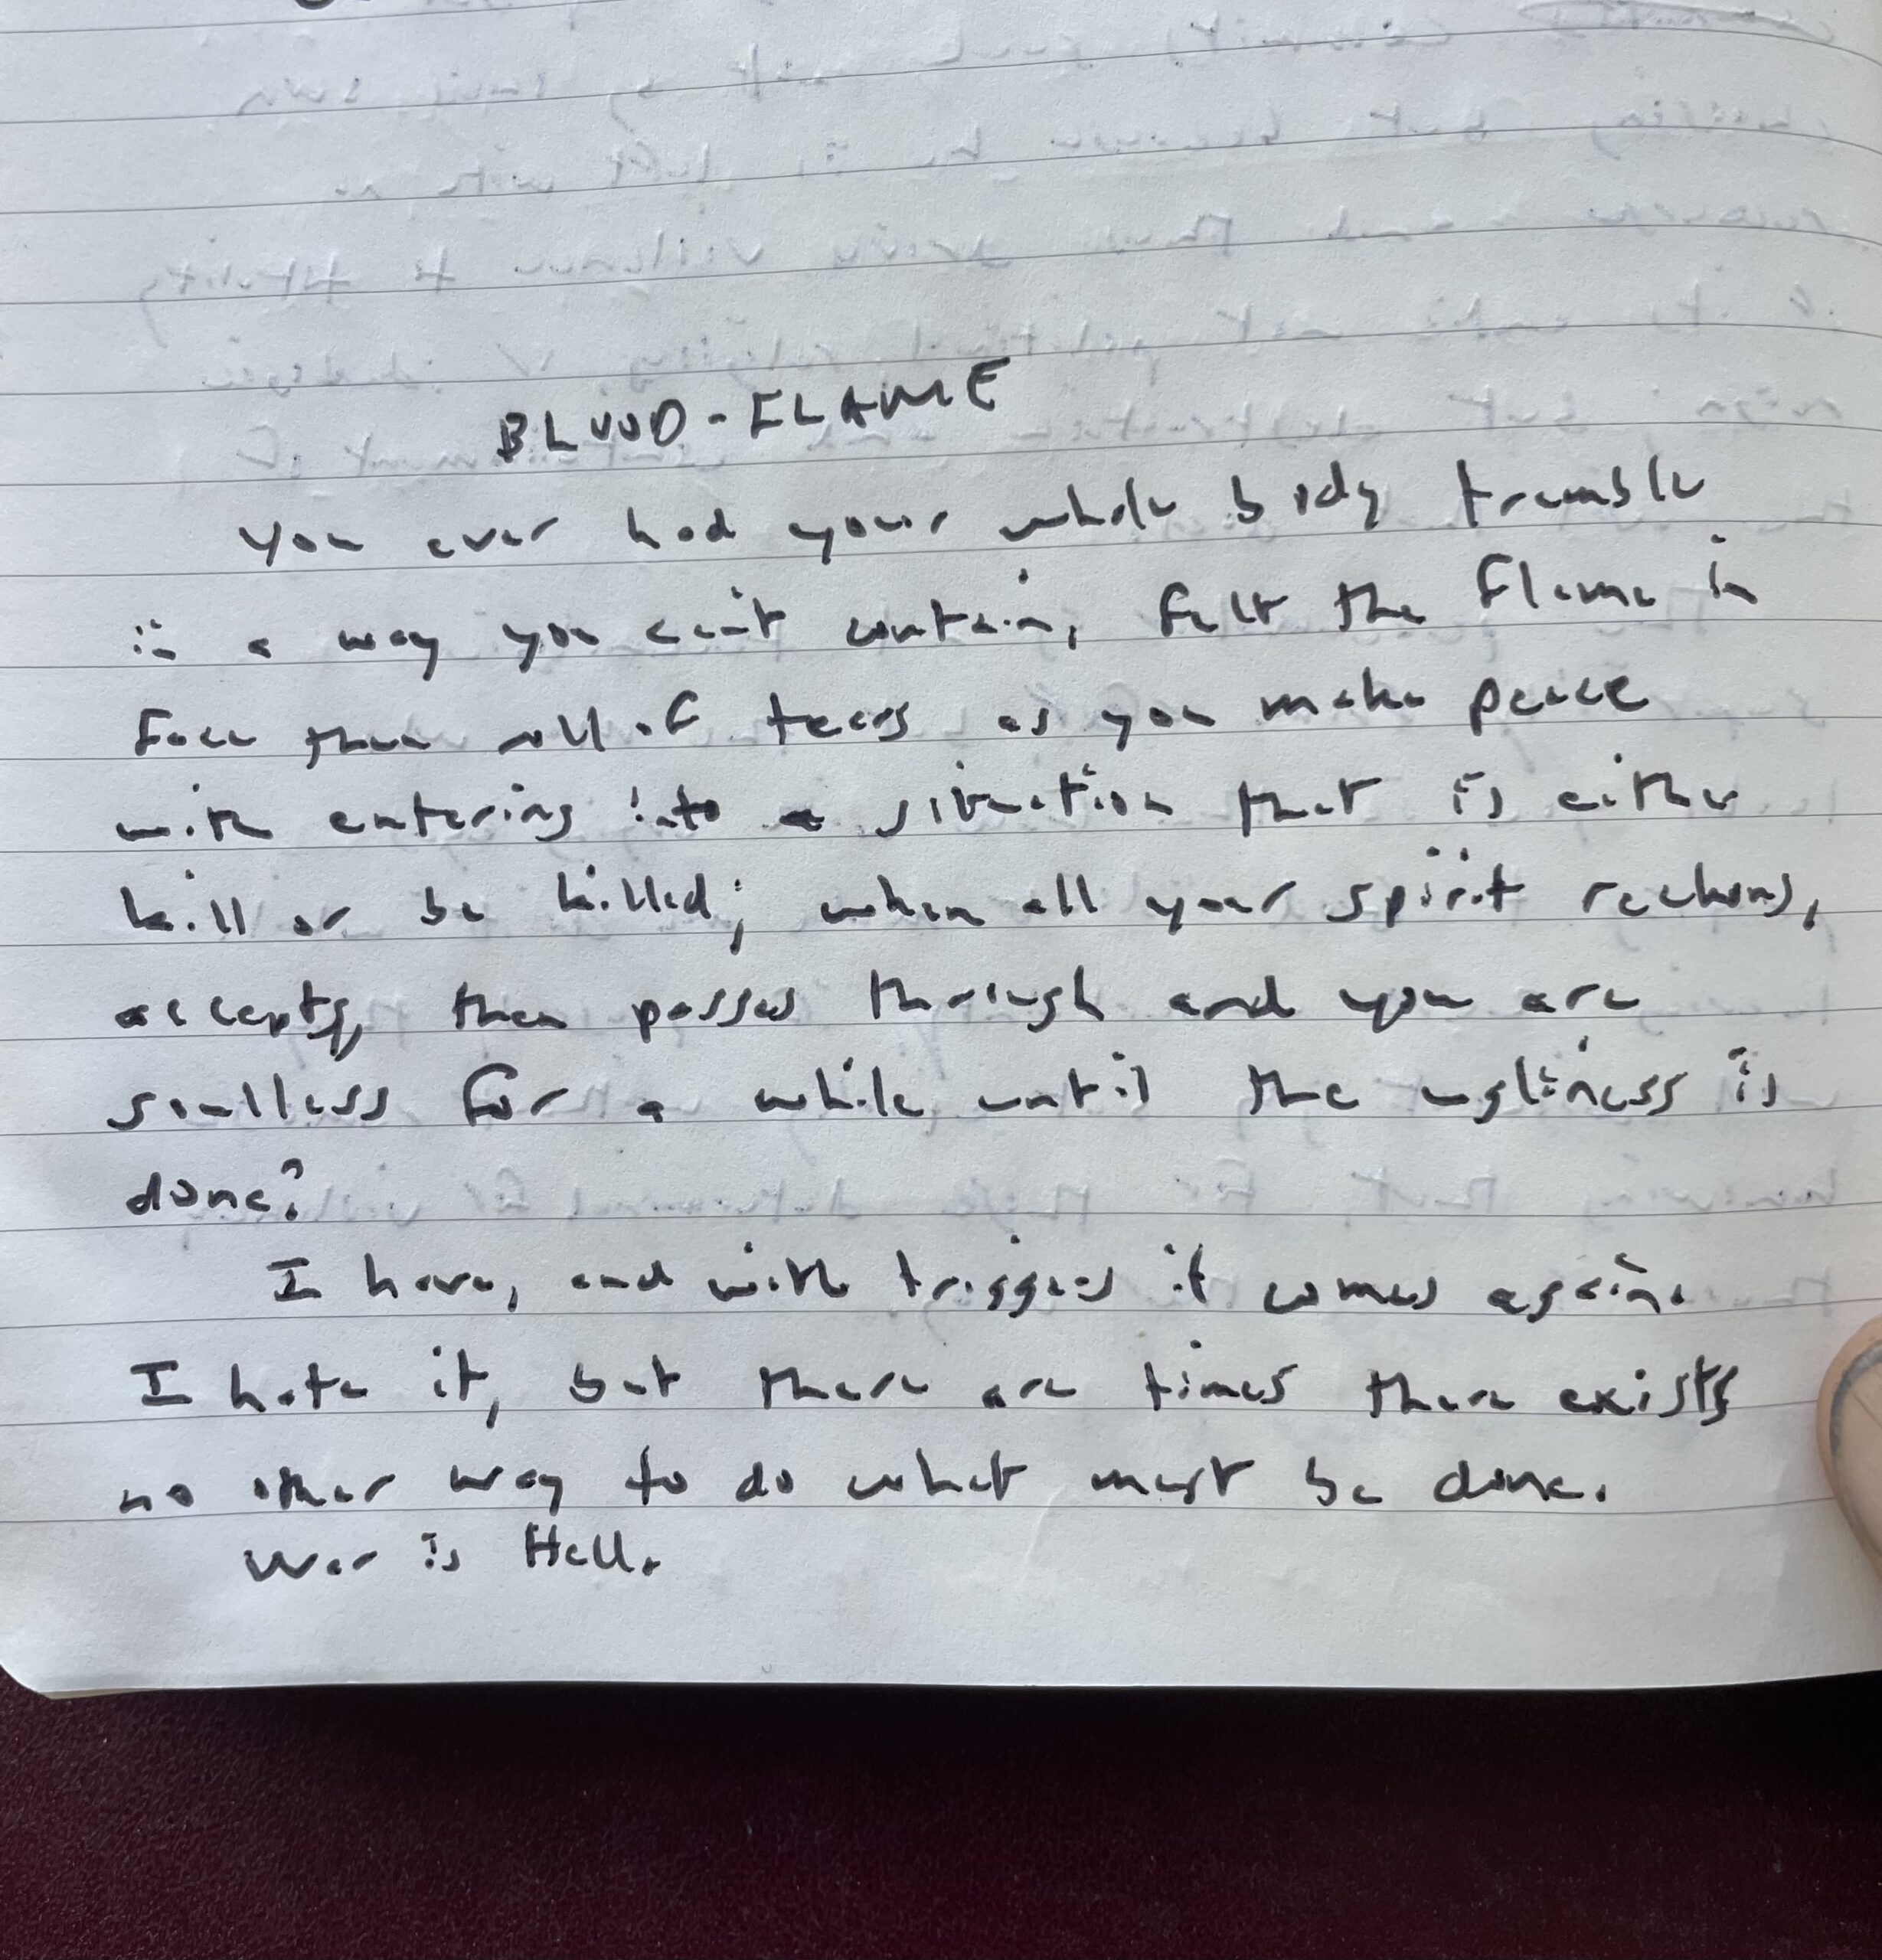 BLOOD-FLAME
You ever had your whole body tremble
in a way you can't contain, felt the flame in
face then roll of tears as you make peace
with entering into a situation that is either
kill or be killed; when all your spirit reckons,
accepts, then passes through and you are
soulless for a while until the ugliness is
done?
I have, and with triggers it comes again.
I hate it, but there are times there exists
no other way to do what must be done.
War is Hell.